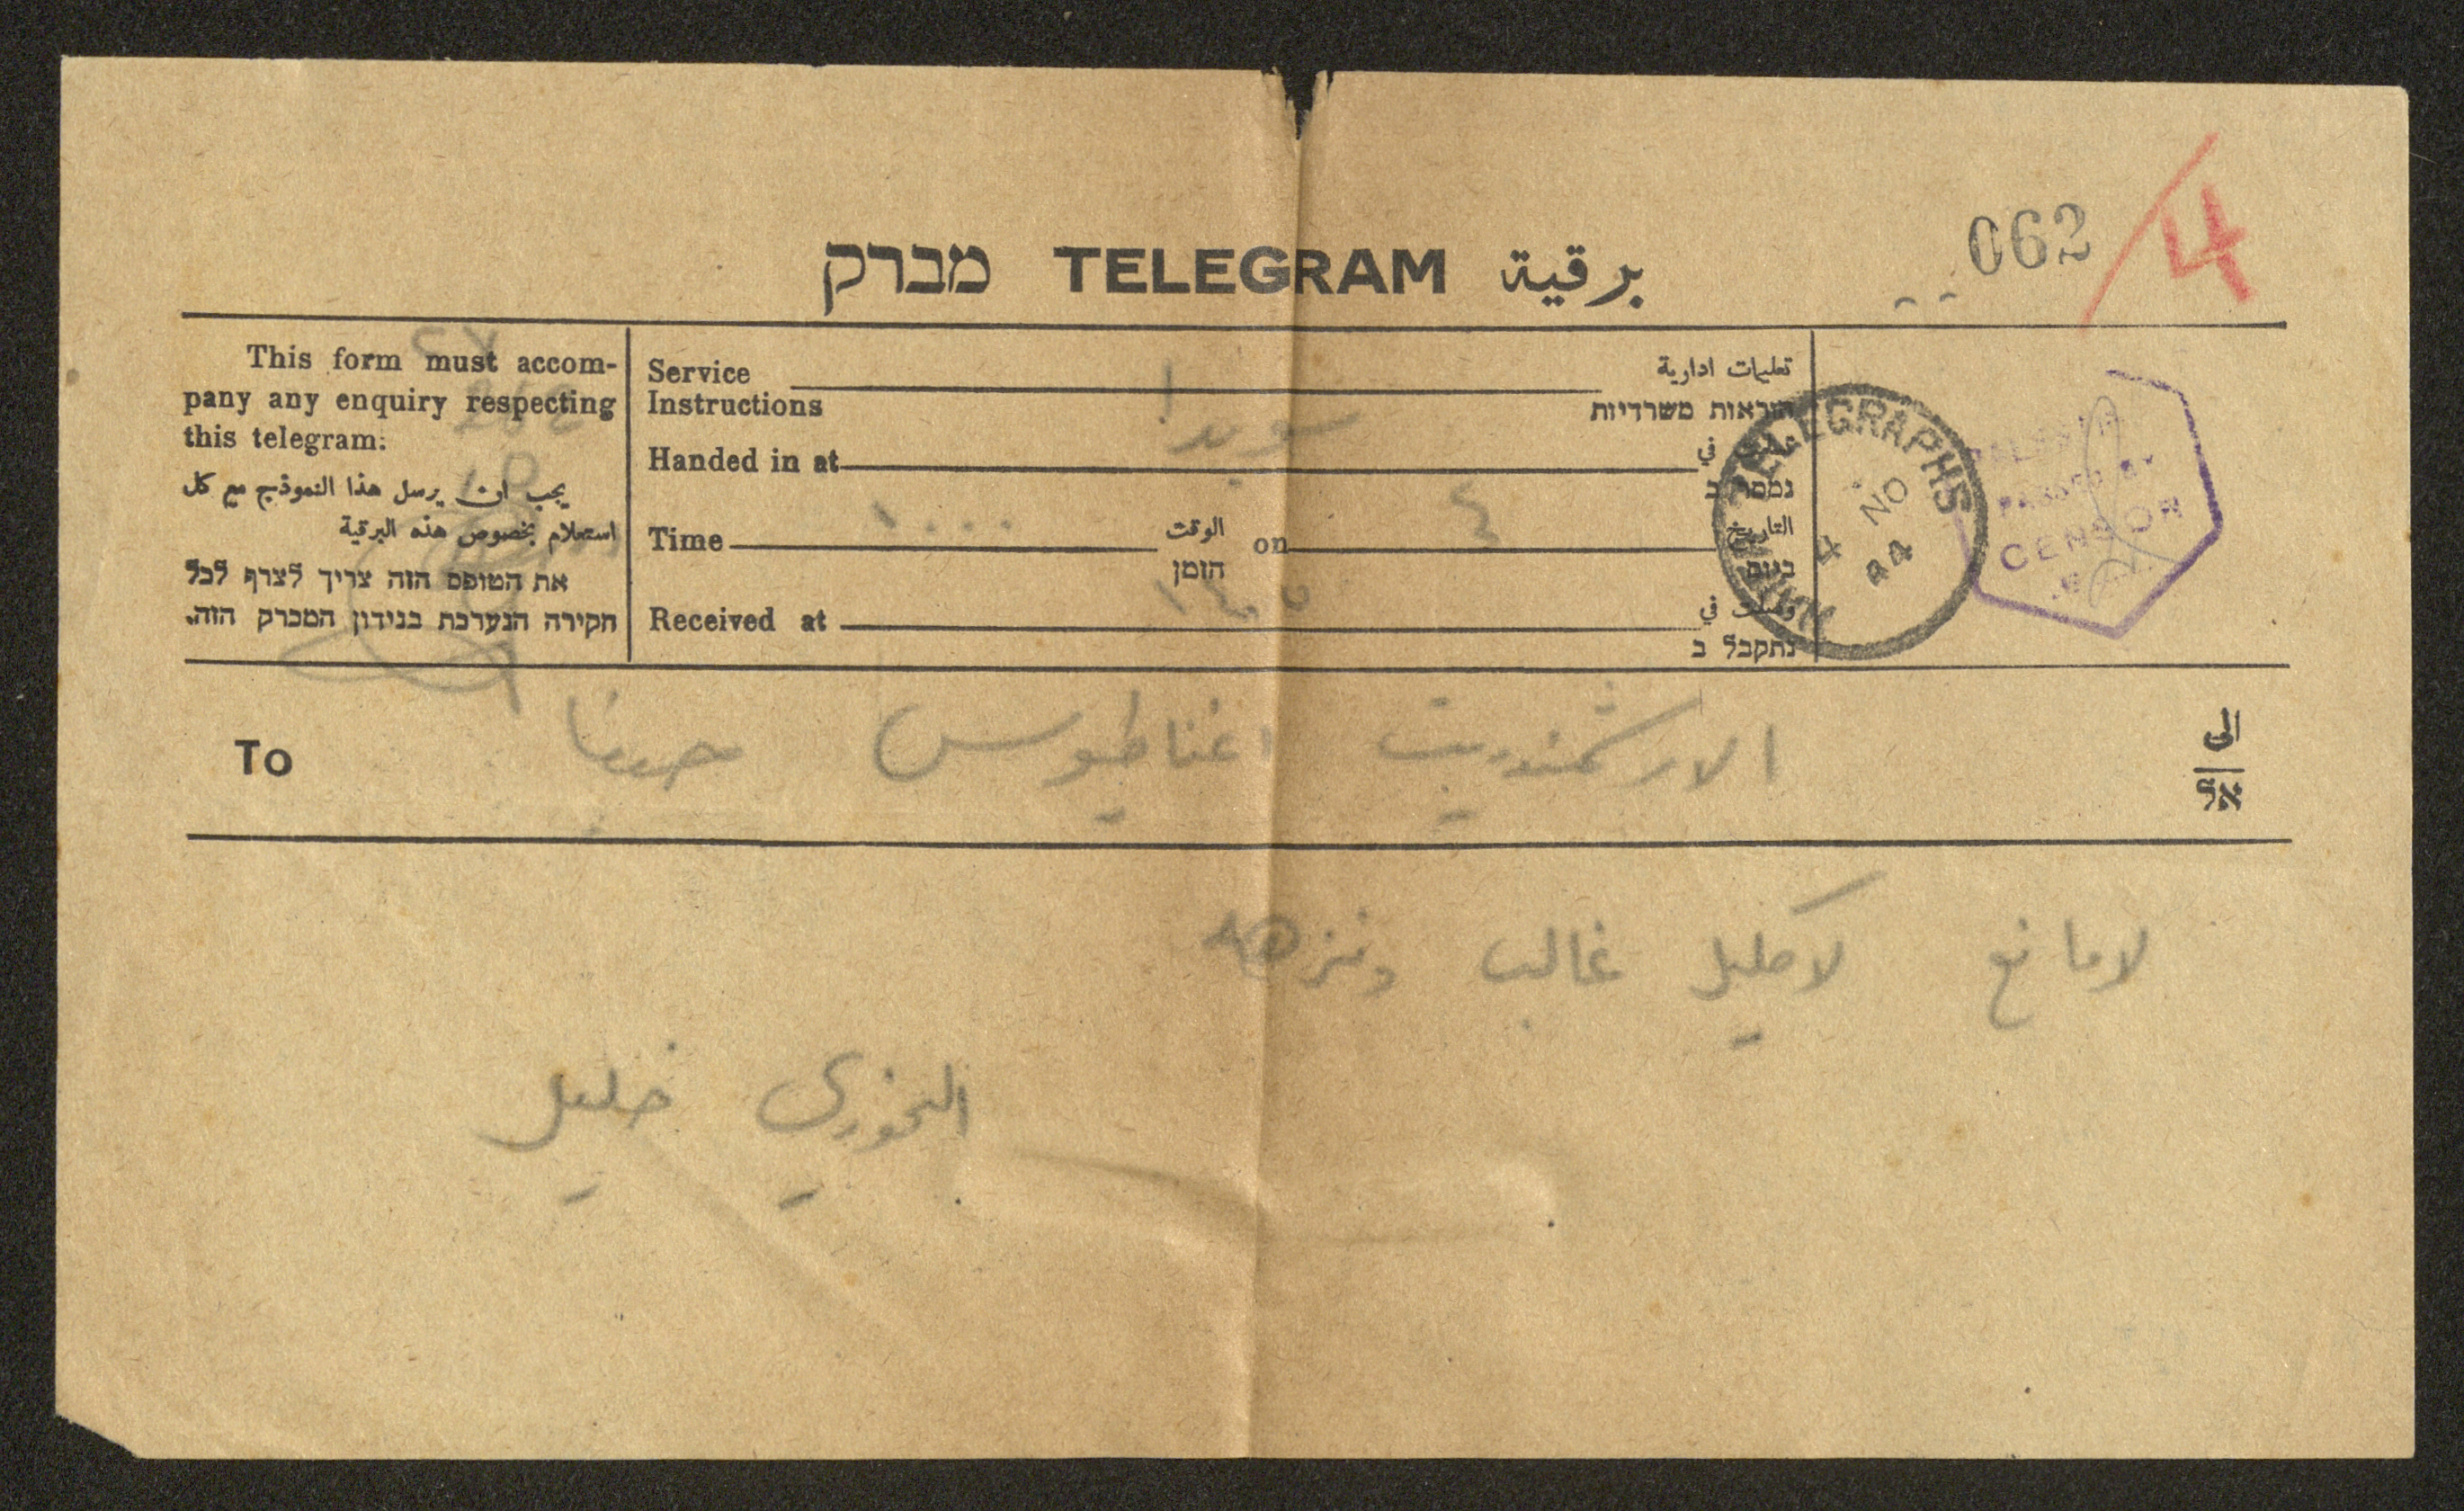 062 /4
מברק TELEGRAM برقية
This form must accom-
pany any enquiry respecting
this telegram.
يجب ان يرسل هذا النموذج مع كل
استعلام بخصوص هذه البرقية
את הטופס הזה צריך לצרף לכל
חקירה הנערכת בנידון המברק הזה.
Service Instructions تعليمات ادارية
הוראות משרדיות
Handed in at سويدا في
נמסר ב
Time ١٠٠٠ الوقت הזמן on ٤ التاريخ
ביום
Received at ١٤٥٥ وصلت في
נתקבל ב
TELEGRAPHS
HAIFA
4 NO
44
PASSED BY
CENSOR
To الارشمندريت اغناطيوس حيفا الى
אל
لا مانع لاكليل غالب ونزهه
الخوري خليل